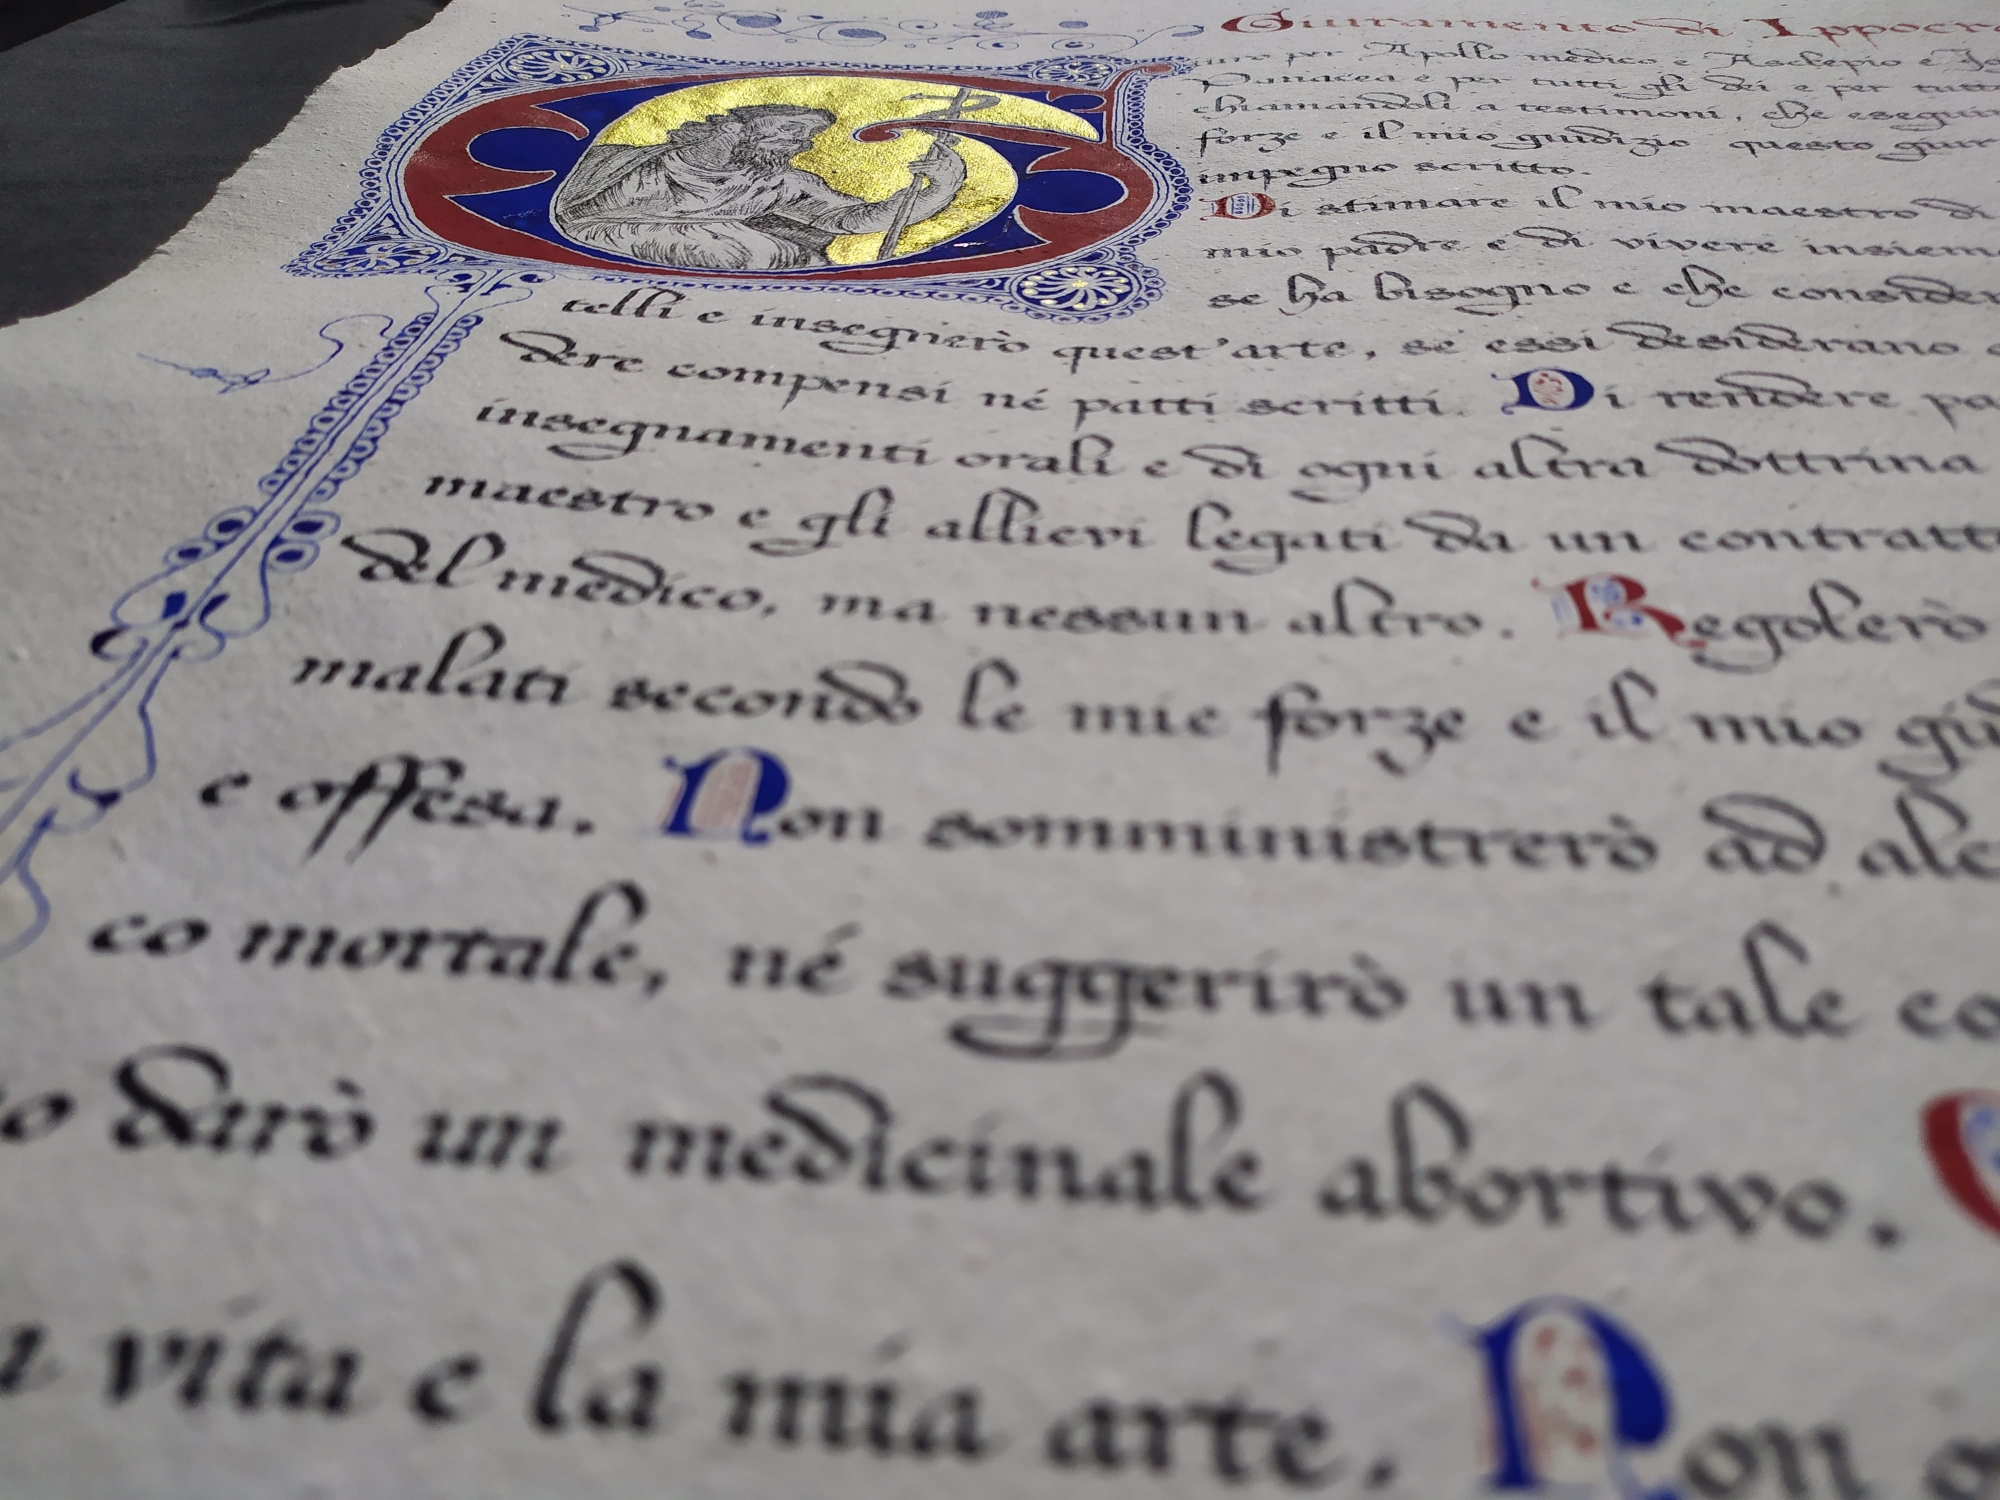 Giuramento di Ippocra
iuro per Apollo medico e Asclepio e Ig
Panacea e per tutti gli dei e per tutt
chiamandoli a testimoni, che eseguir
forze e il mio giudizio questo giur
impegno scritto.
Di stimare il mio maestro di
mio padre e di vivere insiem
se ha bisogno e che consider
telli e insegnerò quest'arte, se essi desiderano
dere compensi né patti scritti. Di rendere pa
insegnamenti orali e di ogni altra dottrina
maestro e gli allievi legati da un contratt
del medico, ma nessun altro. Regolerò
malati secondo le mie forze e il mio giu
e offesa. Non somministrerò ad alc
co mortale, né suggerirò un tale co
o darò un medicinale abortivo.
a vita e la mia arte. Non